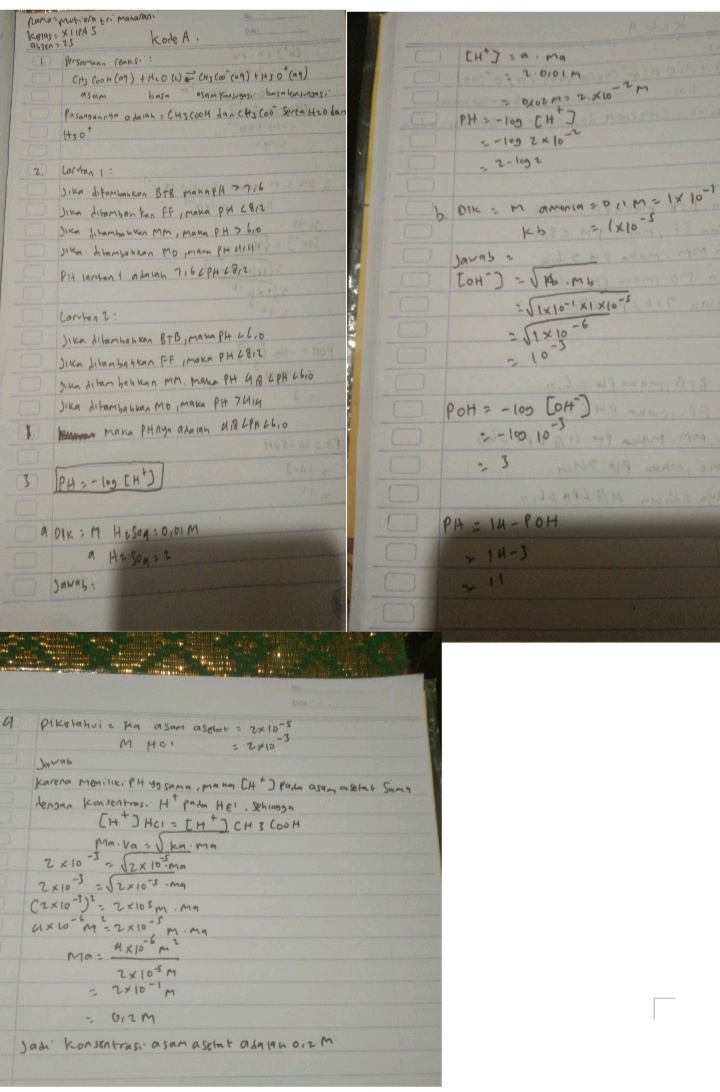 Nama = Mutiara tri Maharani
Kelas = XI IPA 5
absen = 23
Kode A.
1. Persamaan reaksi :
CH3COOH (aq) + H2O (l) ⇌ CH3COO⁻ (aq) + H3O⁺ (aq)
asam basa asam konjugasi basa konjugasi
Pasangannya adalah = CH3COOH dan CH3COO⁻ serta H2O dan
H3O⁺
2. Larutan 1 :
Jika ditambahkan BTB maka PH > 7,6
Jika ditambahkan FF, maka PH < 8,2
Jika ditambahkan MM, maka PH > 6,0
Jika ditambahkan MO, maka PH
PH larutan 1 adalah 7,6 < PH < 8,2
Larutan 2 :
Jika ditambahkan BTB, maka PH < 6,0
Jika ditambahkan FF, maka PH < 8,2
Jika ditambahkan MM. maka PH 4,8 < PH < 6,0
Jika ditambahkan MO, maka PH > 4,4
maka PHnya adalah 4,8 < PH < 6,0
3 PH = -log [H⁺]
a DIK : M H2SO4 = 0,01 M
a H2SO4 = 2
Jawab :
[H⁺] = a . ma
= 2. 0,01 M
= 0,02 M = 2 × 10⁻² M
PH = -log [H⁺]
= -log 2 × 10⁻²
= 2 - log 2
b. DIK = M amonia = 0,1 M = 1 × 10⁻¹
Kb = 1×10⁻⁵
Jawab =
[OH⁻] = √Kb . Mb
= √1×10⁻¹ × 1 × 10⁻⁵
= √1 × 10⁻⁶
= 10⁻³
POH = -log [OH⁻]
= -log 10⁻³
= 3
PH = 14 - POH
= 14 - 3
= 11
4 Diketahui = Ka asam asetat = 2×10⁻⁵
M HCl = 2×10⁻³
Jawab
Karena memiliki PH yg sama, maka [H⁺] pada asam asetat sama
dengan konsentrasi H⁺ pada HCl. sehingga
[H⁺] HCl = [H⁺] CH3COOH
Ma.Va = √Ka . Ma
2 × 10⁻³ = √2 × 10⁻⁵ . Ma
2 × 10⁻³ = √2 × 10⁻⁵ . Ma
(2×10⁻³)² = 2 × 10⁵ M . Ma
4 × 10⁻⁶ M² = 2×10⁻⁵ M . Ma
Ma = 4 × 10⁻⁶ M²
2 × 10⁻⁵ M
= 2×10⁻¹ M
= 0,2 M
Jadi konsentrasi asam asetat adalah 0,2 M